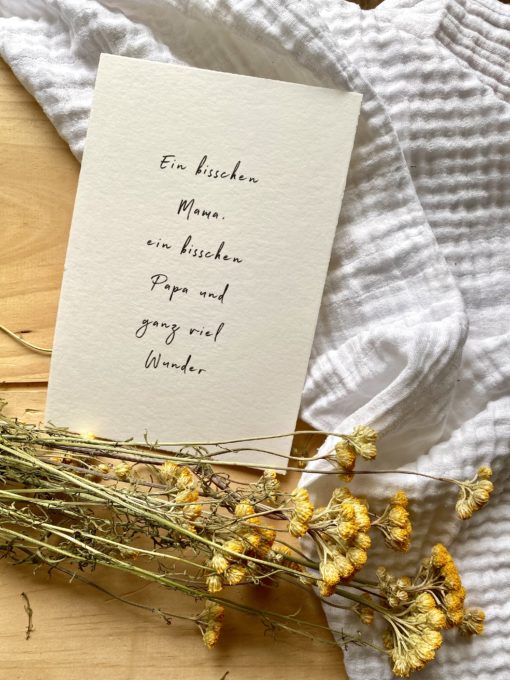 Ein bisschen
Mama.
ein bisschen
Papa und
ganz viel
Wunder